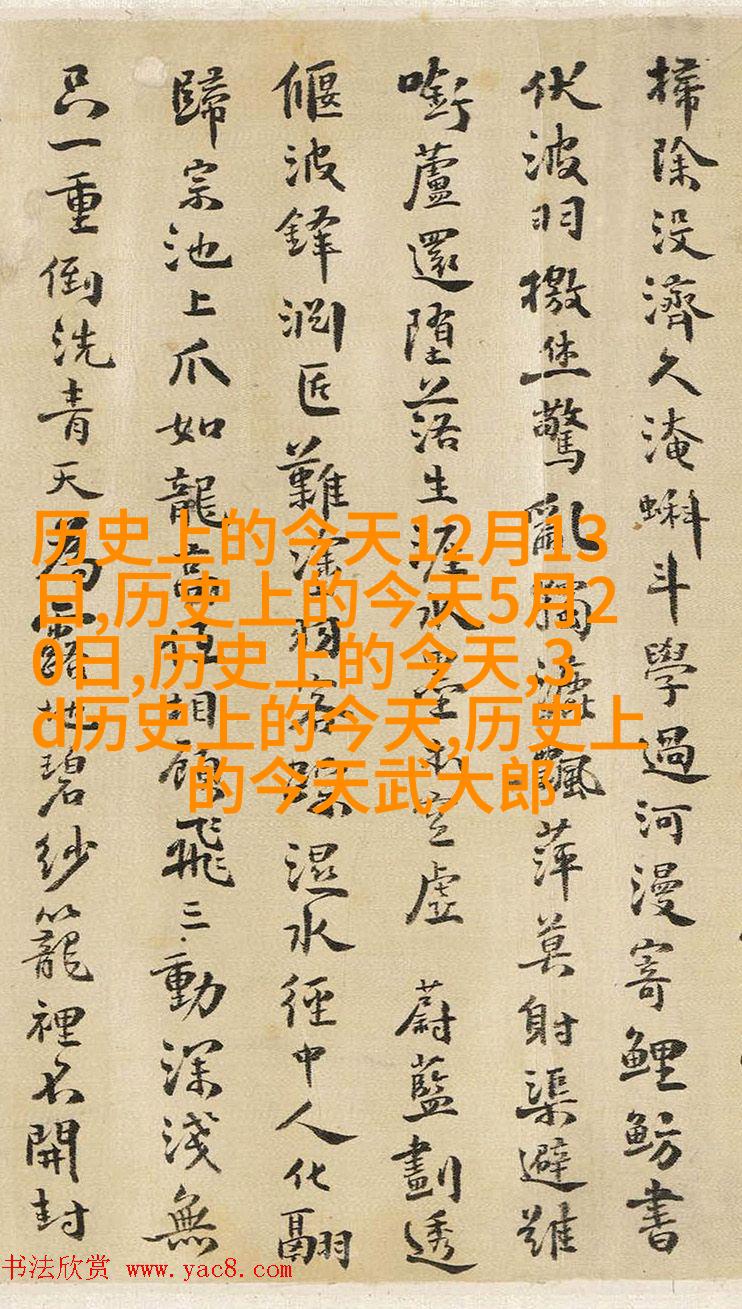 掃除没濟久淹蝌斗學過河漫寄鯉魴書
伏波羽檄焦驚亂獨漉飄萍莫射渠避雖
啣蘆還墮落生涯水墨於空虛 蔚藍劃透
偃波鋒澗匠難塗羽客蹤濕水徑中人化翮
歸宗池上爪如龍 相顧飛三動深淺無
只一重倒洗青天為露地碧紗籠裡不開封
历史上的今天12月13
日,历史上的今天5月2
0日,历史上的今天,3
d历史上的今天,历史上
的今天武大郎
书法欣赏 www.yac8.com